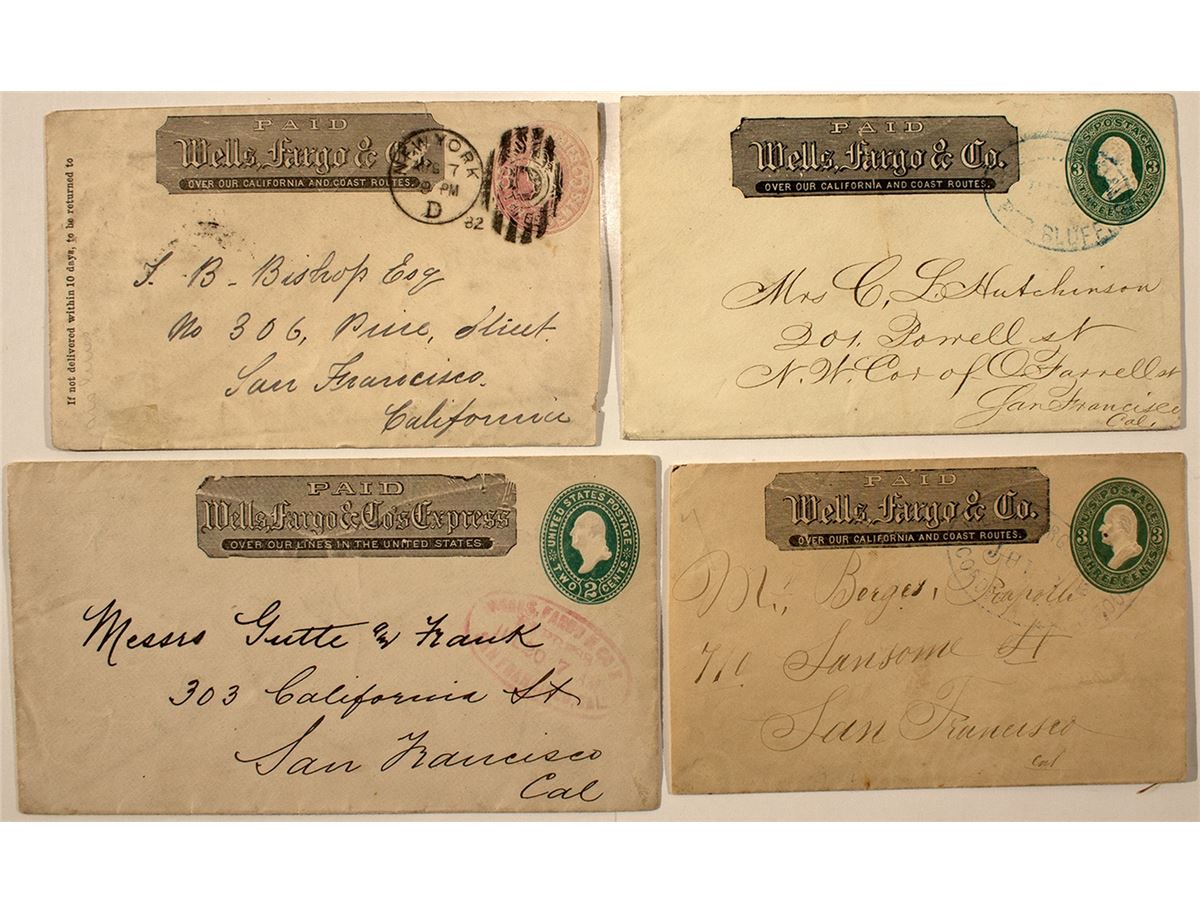 If not delivered within 10 days, to be returned to
PAID
Wells, Fargo & Co.
OVER OUR CALIFORNIA AND COAST ROUTES.
NEW YORK
7
PM
D
82
S. B. Bishop Esq
No 306, Pine, Street.
San Francisco.
California
PAID
Wells, Fargo & Co.
OVER OUR CALIFORNIA AND COAST ROUTES.
U.S. POSTAGE
3 3
THREE CENTS
BLUFF
Mrs C, L. Hutchinson
201. Powell st
N. W. Cor of O,Farrell st
San Francisco
Cal,
PAID
Wells, Fargo & Co's Express
OVER OUR LINES IN THE UNITED STATES.
UNITED STATES POSTAGE
TWO 2 CENTS
WELLS, FARGO & CO'S
Messrs Gutte & Frank
303 California St
San Francisco
Cal
PAID
Wells, Fargo & Co.
OVER OUR CALIFORNIA AND COAST ROUTES.
U.S. POSTAGE
3 3
THREE CENTS
Borges,
710 Sansome St
San Francisco
Cal